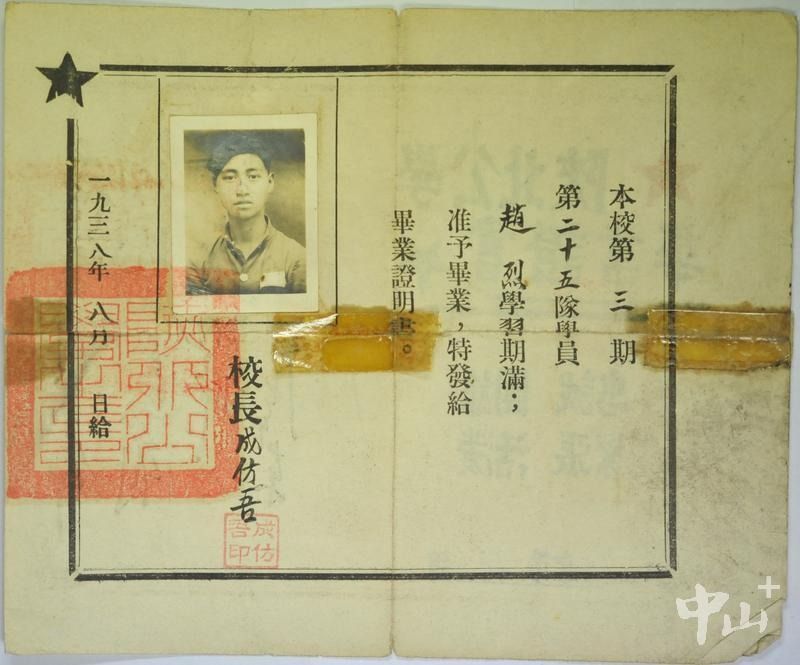 本校第 三 期
第二十五隊學員
趙 烈學習期滿；
准予畢業，特發給
畢業證明書。
校長成仿吾
成仿
吾印
一九三八年 八月 日給
中山+